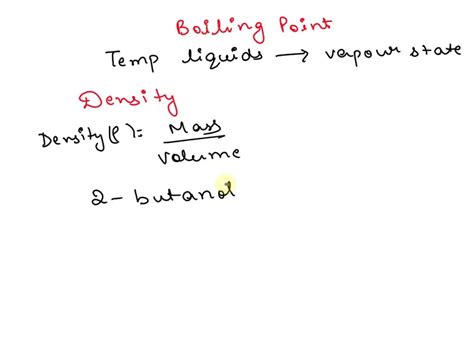 Boiling Point
Temp liquids → vapour state
Density
Density(ρ) = Mass
volume
2 - butanol